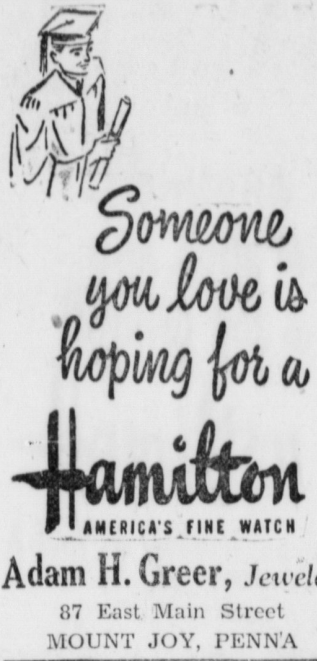 Someone
you love is
hoping for a
Hamilton
AMERICA'S FINE WATCH
Adam H. Greer, Jewel
87 East Main Street
MOUNT JOY, PENN'A